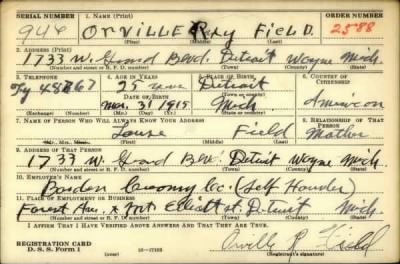 SERIAL NUMBER 1. NAME (Print) ORDER NUMBER
944 ORVILLE RAY FIELD. 2588
(First) (Middle) (Last)
2. ADDRESS (Print)
1733 W. Grand Blvd. Detroit Wayne Mich.
(Number and street or R. F. D. number) (Town) (County) (State)
3. TELEPHONE 4. AGE IN YEARS 5. PLACE OF BIRTH 6. COUNTRY OF CITIZENSHIP
25 Detroit
DATE OF BIRTH
Mar. 31 1915 Mich American
(Exchange) (Number) (Mo.) (Day) (Yr.) (State or country)
7. NAME OF PERSON WHO WILL ALWAYS KNOW YOUR ADDRESS 8. RELATIONSHIP OF THAT PERSON
Field Mother
(Mr., Mrs., Miss) (First) (Middle) (Last)
9. ADDRESS OF THAT PERSON
1733 W. Grand Blv. Detroit Wayne Mich.
(Number and street or R. F. D. number) (Town) (County) (State)
10. EMPLOYER'S NAME
Borden
11. PLACE OF EMPLOYMENT OR BUSINESS
Forest Ave. Elliott st. Detroit Mich.
(Number and street or R. F. D. number) (Town) (County) (State)
I AFFIRM THAT I HAVE VERIFIED ABOVE ANSWERS AND THAT THEY ARE TRUE.
REGISTRATION CARD
D. S. S. Form 1 Orville R Field
(Registrant's signature)